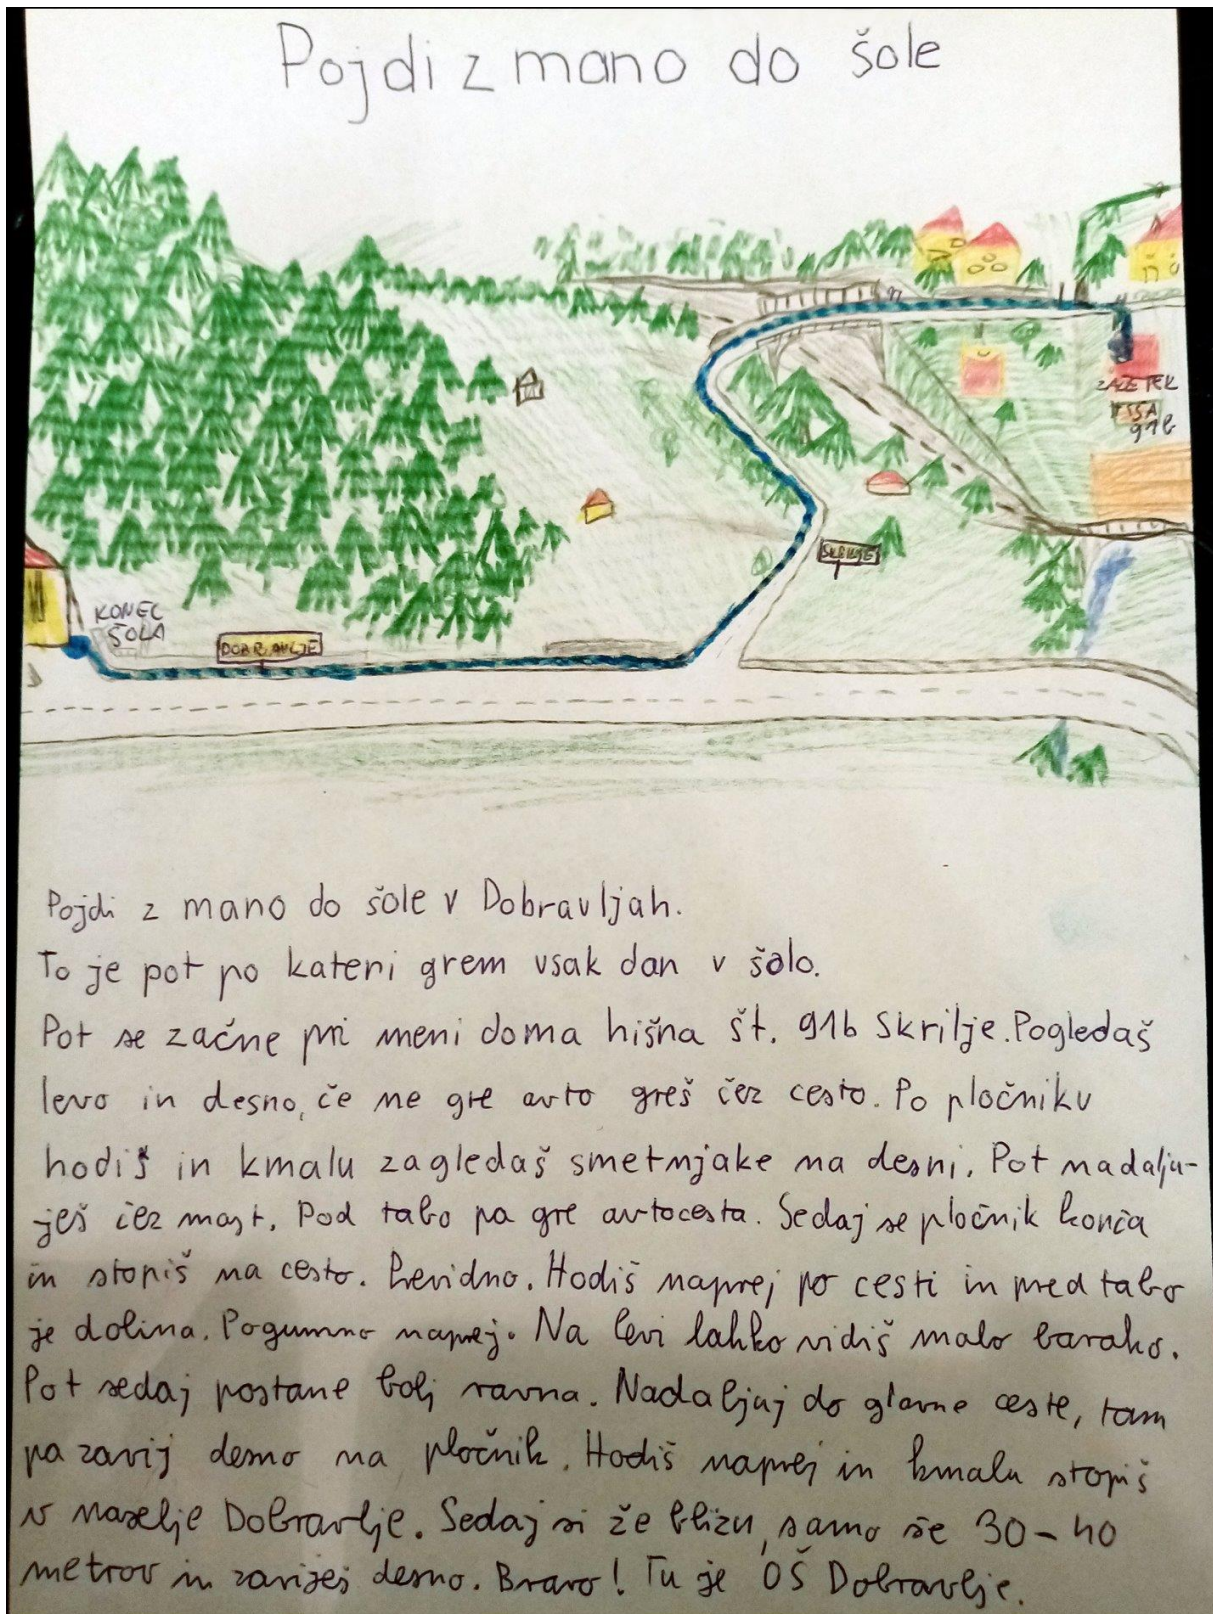 Pojdi z mano do šole
ZAČETEK
91b
SKRILJE
KONEC
ŠOLA
DOBRAVLJE
Pojdi z mano do šole v Dobravljah.
To je pot po kateri grem vsak dan v šolo.
Pot se začne pri meni doma hišna št. 91b Skrilje. Pogledaš
levo in desno, če ne gre avto greš čez cesto. Po pločniku
hodiš in kmalu zagledaš smetnjake na desni. Pot nadalju-
ješ čez most. Pod tabo pa gre avtocesta. Sedaj se pločnik konča
in stopiš na cesto. Previdno. Hodiš naprej po cesti in pred tabo
je dolina. Pogumno naprej. Na levi lahko vidiš malo barako.
Pot sedaj postane bolj ravna. Nadaljuj do glavne ceste, tam
pa zavij desno na pločnik. Hodiš naprej in kmalu stopiš
v naselje Dobravlje. Sedaj si že blizu, samo še 30-40
metrov in zaviješ desno. Bravo! Tu je OŠ Dobravlje.